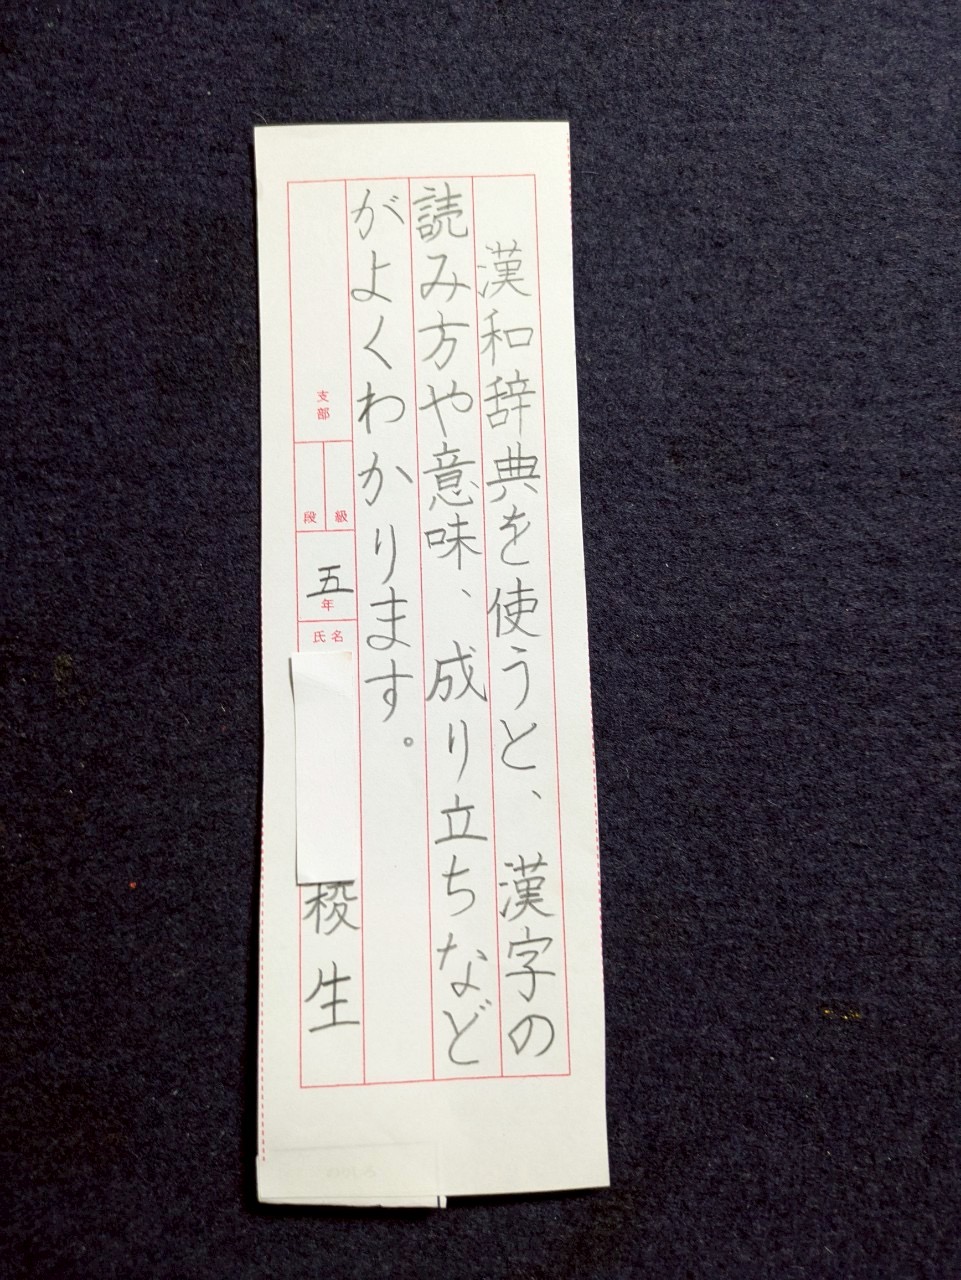 漢和辞典を使うと、漢字の
読み方や意味、成り立ちなど
がよくわかります。
支部
段 級
五年
氏名
稜生